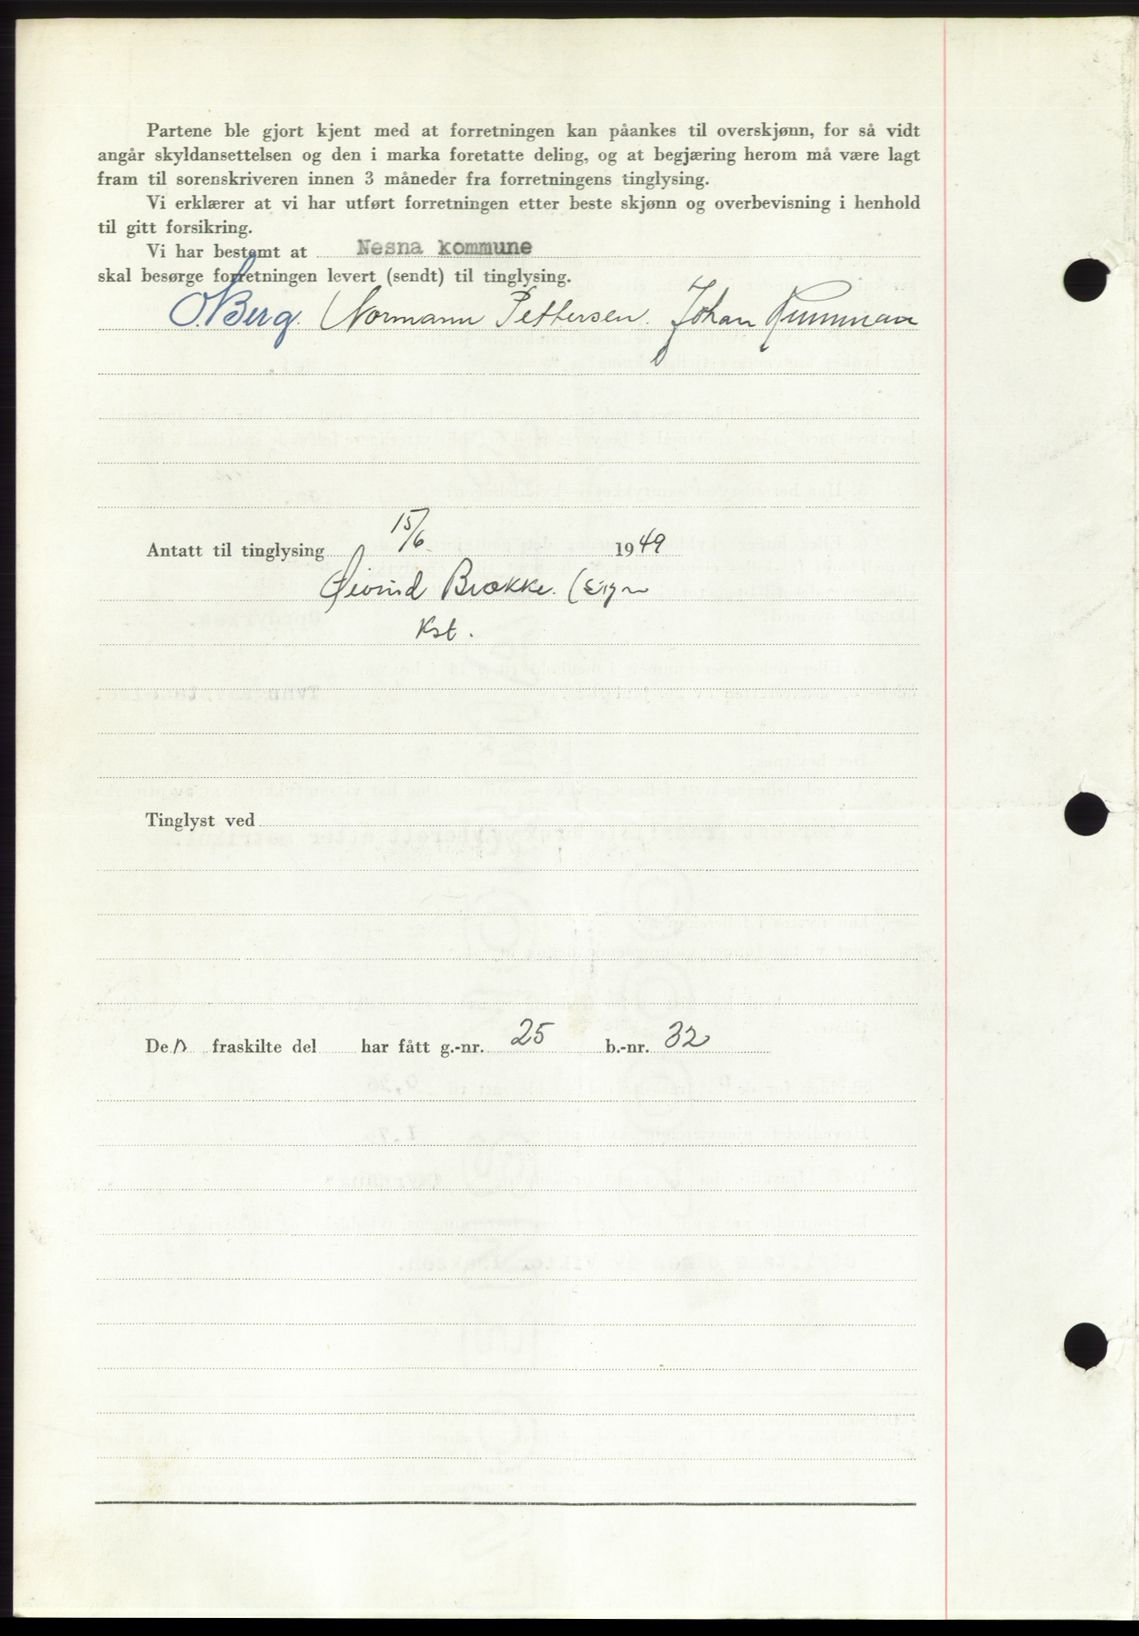 Partene ble gjort kjent med at forretningen kan påankes til overskjønn, for så vidt
angår skyldansettelsen og den i marka foretatte deling, og at begjæring herom må være lagt
fram til sorenskriveren innen 3 måneder fra forretningens tinglysing.
Vi erklærer at vi har utført forretningen etter beste skjønn og overbevisning i henhold
til gitt forsikring.
Vi har bestemt at Nesna kommune
skal besørge forretningen levert (sendt) til tinglysing.
O. Berg. Normann Pettersen. Johan
Antatt til tinglysing 15/6 1949
Øivind Brække.
Kst.
Tinglyst ved
Den fraskilte del har fått g.-nr. 25 b.-nr. 32